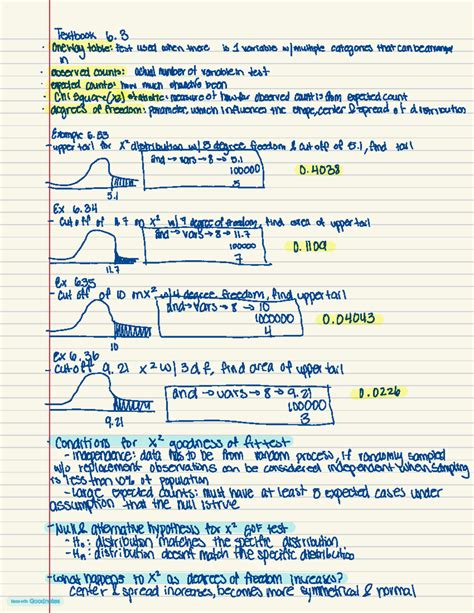 Textbook 6.3
· One Way table: test used when there is 1 variable w/ multiple categories that can be arrange
in
· observed counts: actual number of variable in test
· expected counts: how much should've been
· Chi Square (x²) statistic: measure of how far observed count is from expected count
· degrees of freedom: parameter, which influences the shape, center & spread of distribution
Example 6.33
- upper tail for x² distribution w/ 5 degree freedom & cut off of 5.1, find tail
2nd → vars → 8 → 5.1
100000
5
0.4038
5.1
Ex 6.34
- Cut off of 11.7 in x² w/ 7 degree of freedom, find area of upper tail
2nd → vars → 8 → 11.7
100000
7
0.1109
11.7
Ex 6.35
- Cut off of 10 in x² w/ 4 degree freedom, find upper tail
2nd → vars → 8 → 10
1000000
4
0.04043
10
Ex 6.36
- Cutoff 9.21 x² w/ 3 df, find area of upper tail
2nd → vars → 8 → 9.21
100000
3
0.0226
9.21
· Conditions for x² goodness of fit test
- independence: data has to be from random process, if randomly sampled
w/o replacement observations can be considered independent when sampling
is less than 10% of population
- large expected counts: must have at least 5 expected cases under
assumption that the null is true
· Null & alternative hypothesis for x² GOF test
- H₀: distribution matches the specific distribution
- Hₐ: distribution doesn't match the specific distribution
· What happens to x² as degrees of freedom increases?
center & spread increases, becomes more symmetrical & normal
Made with Goodnotes